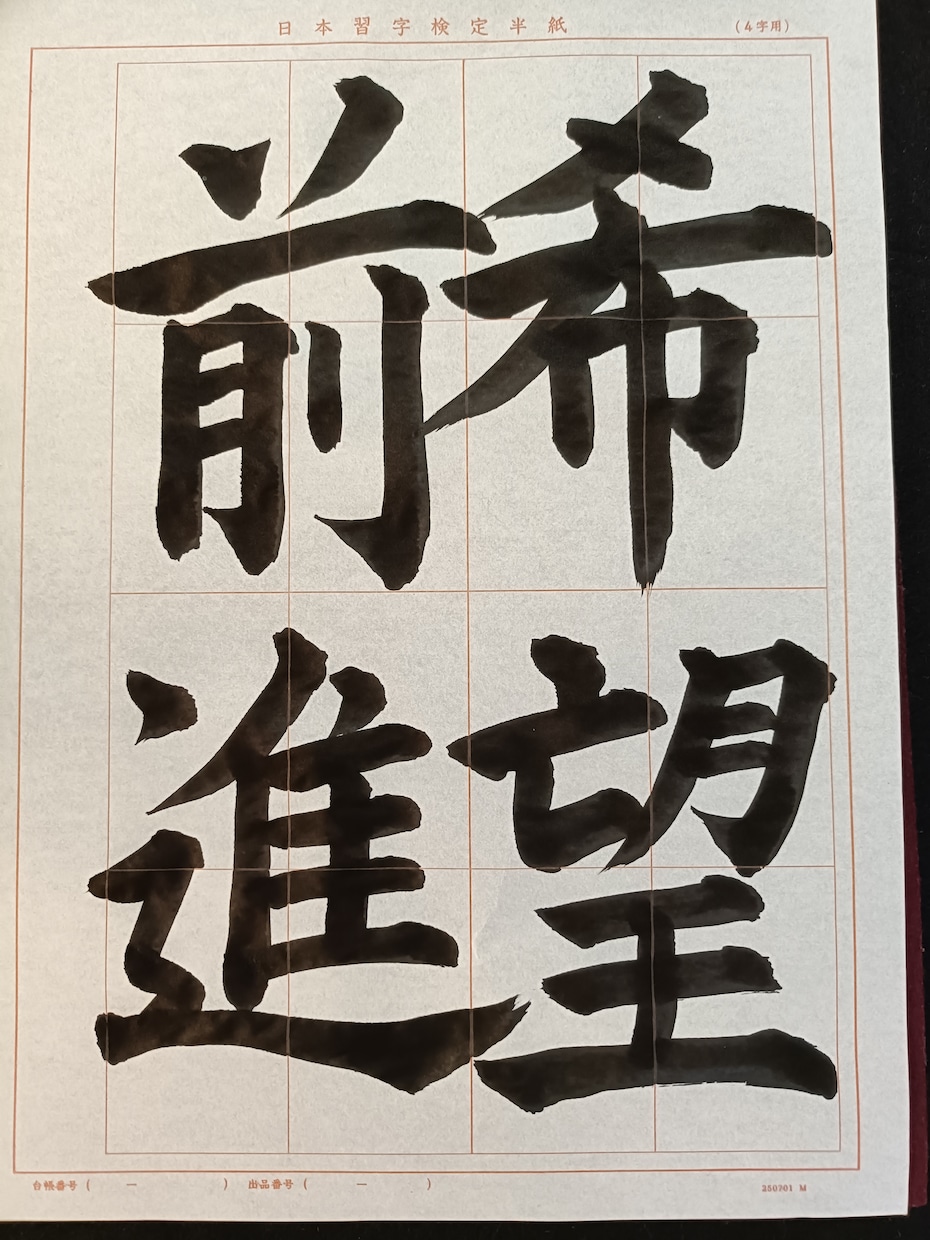 日本習字検定半紙
(4字用)
希望
前進
台帳番号( ー )
出品番号( ー )
250701 M